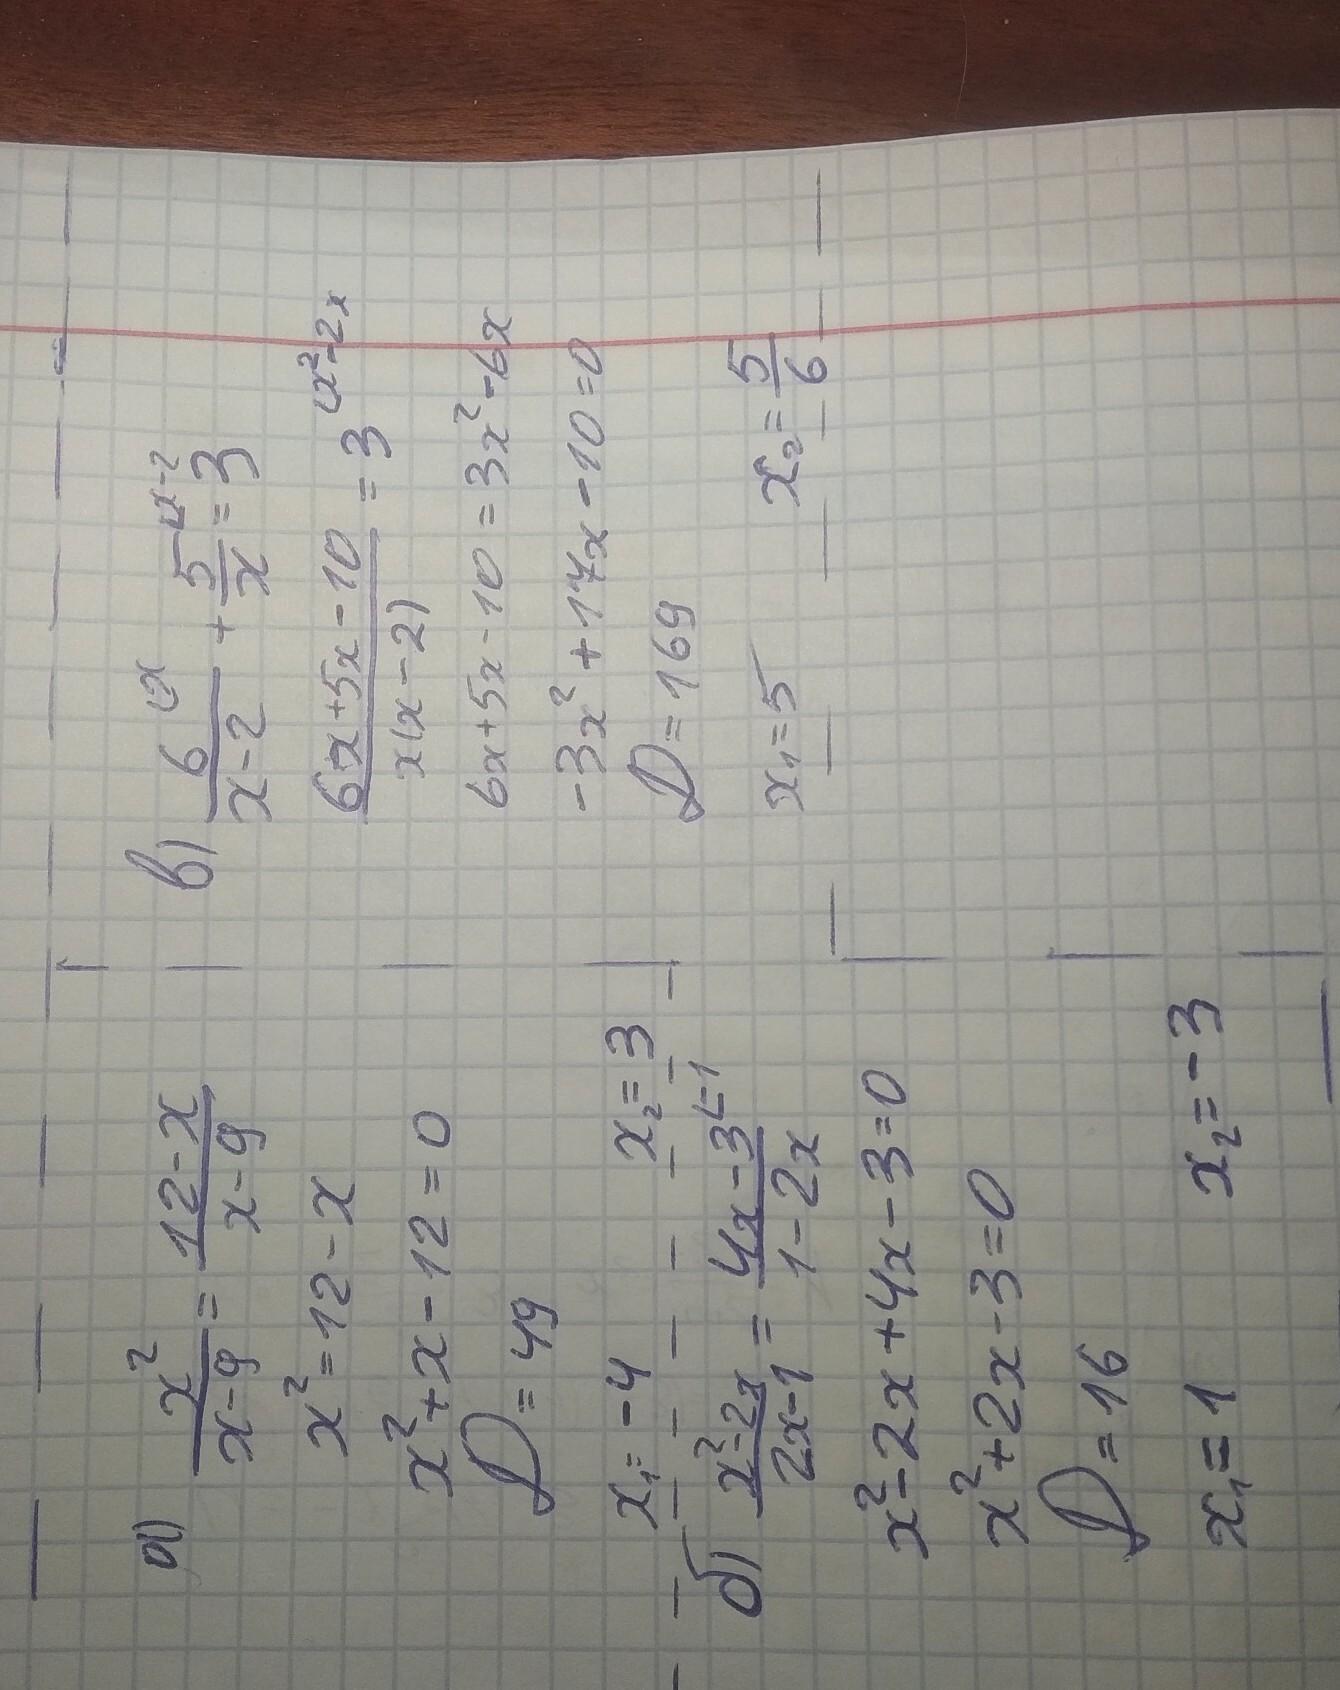 а) x²/(x-9) = (12-x)/(x-9)
x² = 12 - x
x² + x - 12 = 0
D = 49
x₁ = -4 x₂ = 3
б) (x²-2x)/(2x-1) = (4x-3)/(1-2x) (-1
x² - 2x + 4x - 3 = 0
x² + 2x - 3 = 0
D = 16
x₁ = 1 x₂ = -3
в) 6/(x-2) (x + 5/x (x-2 = 3
(6x + 5x - 10)/(x(x-2)) = 3 (x²-2x
6x + 5x - 10 = 3x² - 6x
-3x² + 17x - 10 = 0
D = 169
x₁ = 5 x₂ = 5/6